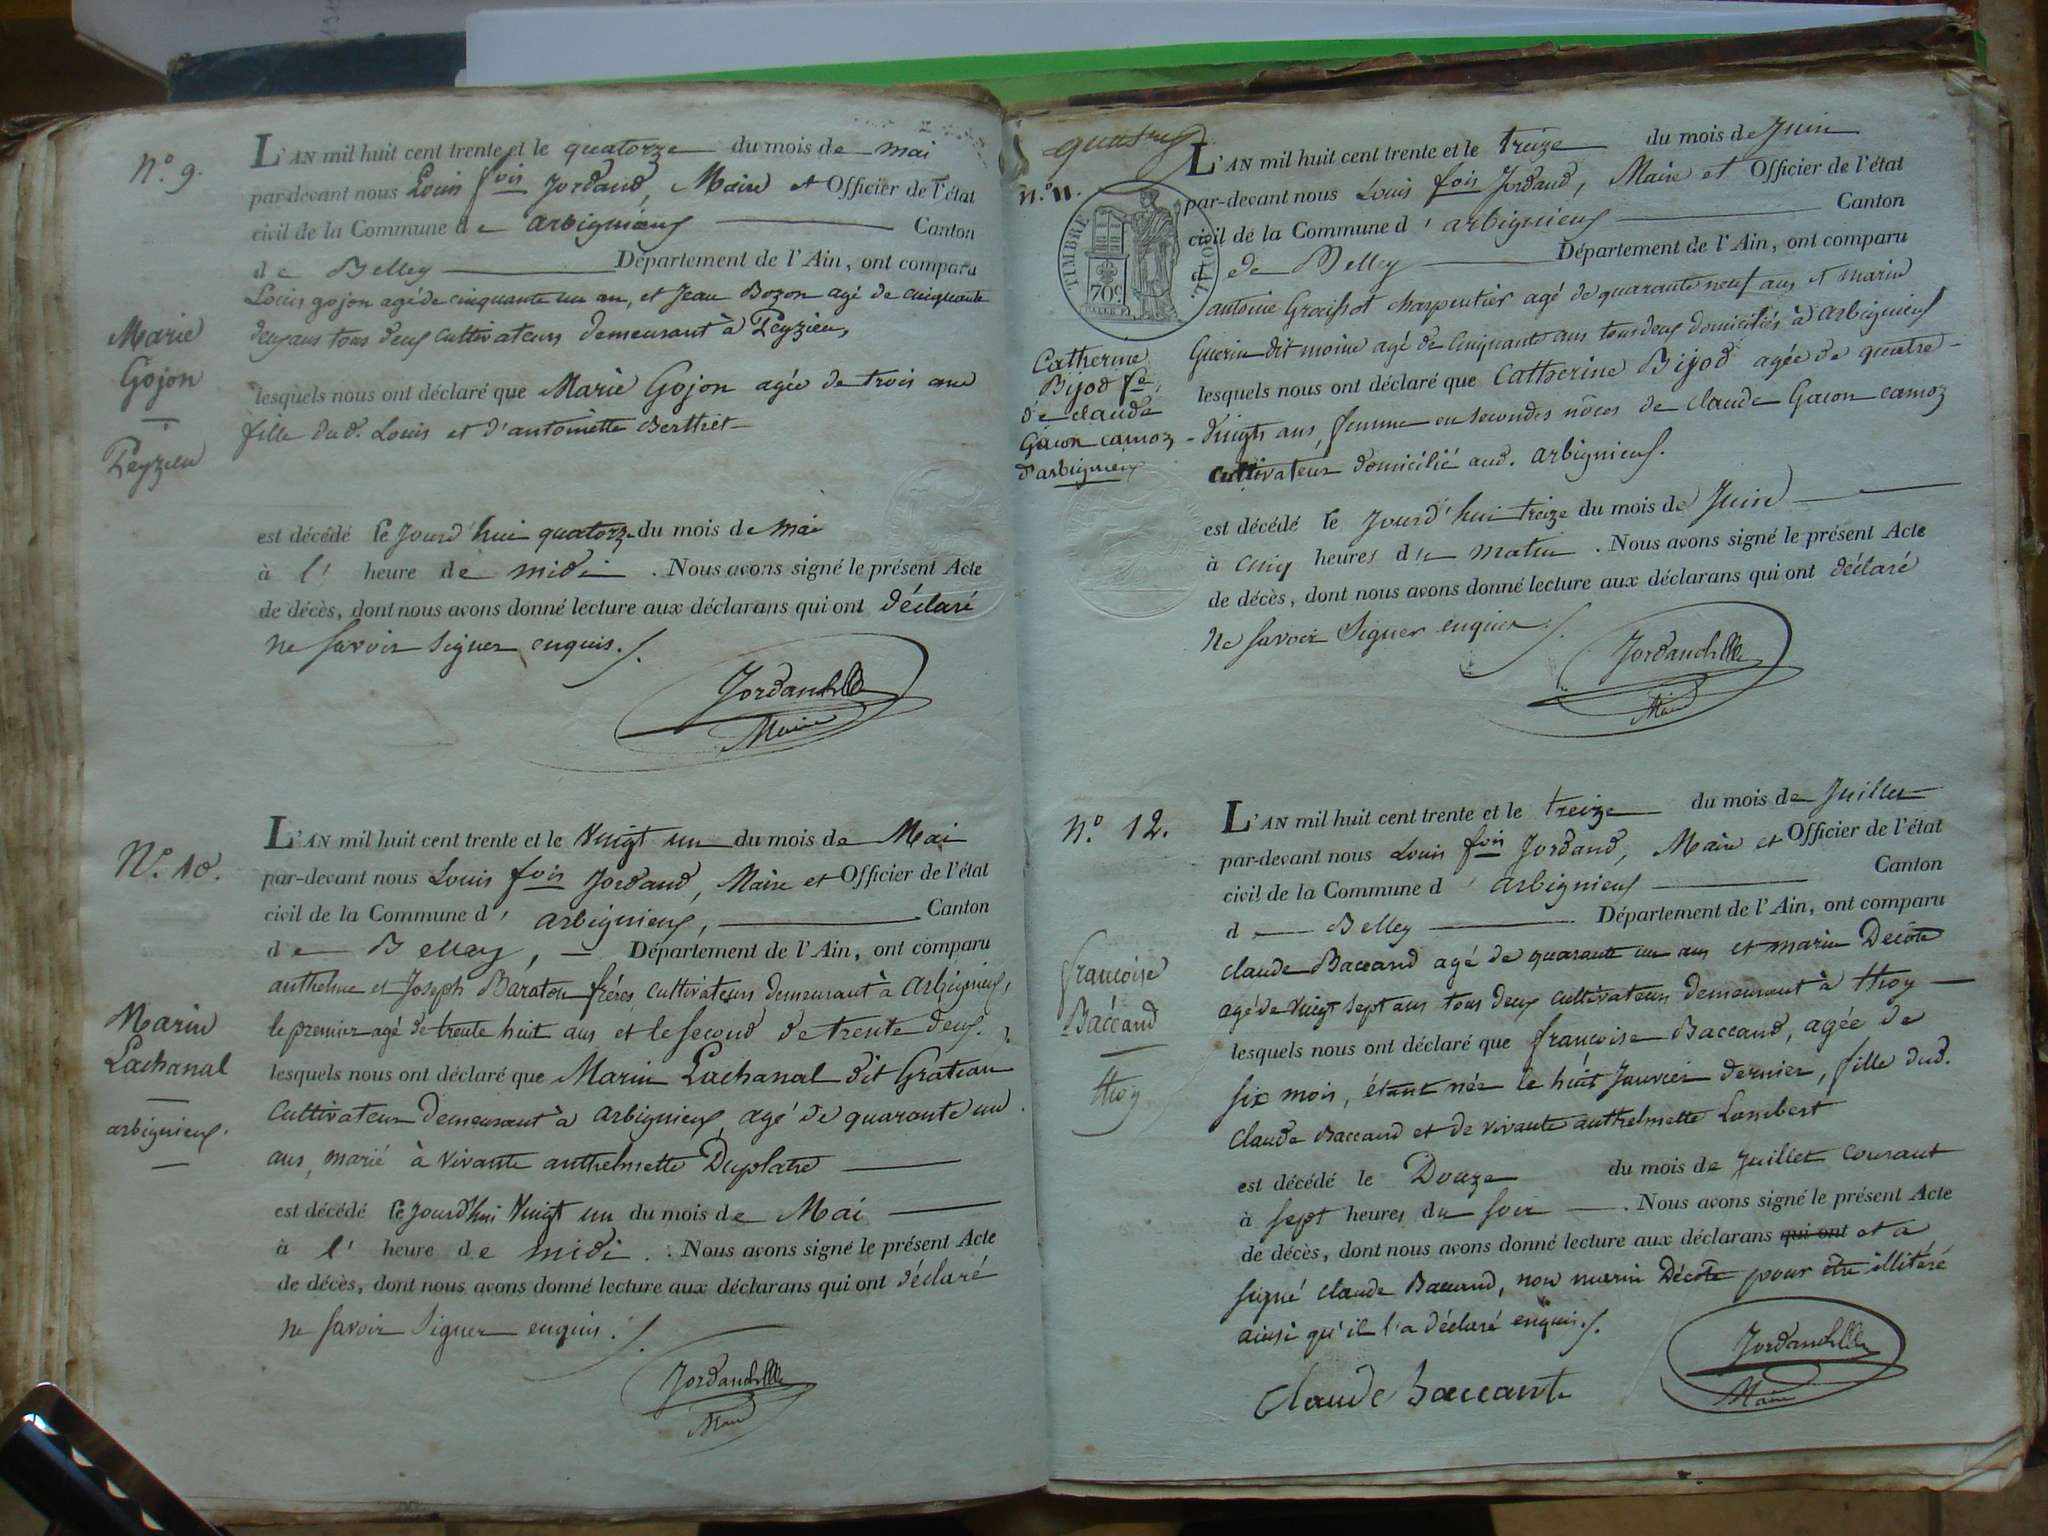 N.o 9.
L'AN mil huit cent trente et le quatorze du mois de mai
par-devant nous Louis fois Jordand, Maire et Officier de l'état
civil de la Commune de arbignieux Canton
de Belley Département de l'Ain, ont comparu
Louis gojon agé de cinquante un an, et Jean Bozon agé de cinquante
deux ans tous deux cultivateurs demeurant à Peyzieu,
Marie
Gojon
Peyzieu
lesquels nous ont déclaré que Marie Gojon agée de trois ans
fille dud. Louis et d'antoinette Berthet
est décédé le jourd'hui quatorze du mois de mai
à l' heure de midi . Nous avons signé le présent Acte
de décès, dont nous avons donné lecture aux déclarans qui ont déclaré
ne savoir signer enquis ./.
Maire
N.o 10.
L'AN mil huit cent trente et le vingt un du mois de Mai
par-devant nous Louis fois Jordand, Maire et Officier de l'état
civil de la Commune d' arbignieux, Canton
de Belley, Département de l'Ain, ont comparu
anthelme et Joseph Baraton frères cultivateurs demeurant à arbignieux,
le premier agé de trente huit ans et le second de trente deux.
Marin
Lachanal
arbignieux.
lesquels nous ont déclaré que Marin Lachanal dit Gratian
cultivateur demeurant à arbignieux, agé de quarante un
ans, marié à vivante anthelmette Duplatre
est décédé le jourd'hui vingt un du mois de Mai
à l' heure de midi . Nous avons signé le présent Acte
de décès, dont nous avons donné lecture aux déclarans qui ont déclaré
ne savoir signer enquis ./.
Maire
N.o 11.
TIMBRE ROYAL
70c
L'AN mil huit cent trente et le treize du mois de Juin
par-devant nous Louis fois Jordand, Maire et Officier de l'état
civil de la Commune d' arbignieux Canton
de Belley Département de l'Ain, ont comparu
antoine Groissot charpentier agé de quarante neuf ans et marin
Guerin dit moine agé de cinquante ans tous deux domiciliés à arbignieux
Catherine
Bijod fe
de claude
Gacon camoz
d'arbignieux
lesquels nous ont déclaré que Catherine Bijod agée de quatre-
-vingts ans, femme en secondes nôces de claude Gacon camoz
cultivateur domicilié aud. arbignieux.
est décédé le jourd'hui treize du mois de Juin
à cinq heures du matin . Nous avons signé le présent Acte
de décès, dont nous avons donné lecture aux déclarans qui ont déclaré
ne savoir signer enquis ./.
Maire
N.o 12.
L'AN mil huit cent trente et le treize du mois de Juillet
par-devant nous Louis fois Jordand, Maire et Officier de l'état
civil de la Commune d' arbignieux Canton
d Belley Département de l'Ain, ont comparu
claude Baccand agé de quarante un ans et marin Decôte
agé de vingt sept ans tous deux cultivateurs demeurant à thoy
françoise
Baccand
thoy
lesquels nous ont déclaré que françoise Baccand, agée de
six mois, étant née le huit Janvier dernier, fille dud.
claude Baccand et de vivante anthelmette Lambert
est décédé le Douze du mois de Juillet courant
à sept heures du soir . Nous avons signé le présent Acte
de décès, dont nous avons donné lecture aux déclarans qui ont et a
signé claude Baccand, non marin Décôte pour être illitéré
ainsi qu'il l'a déclaré enquis ./.
Claude Baccant
Maire